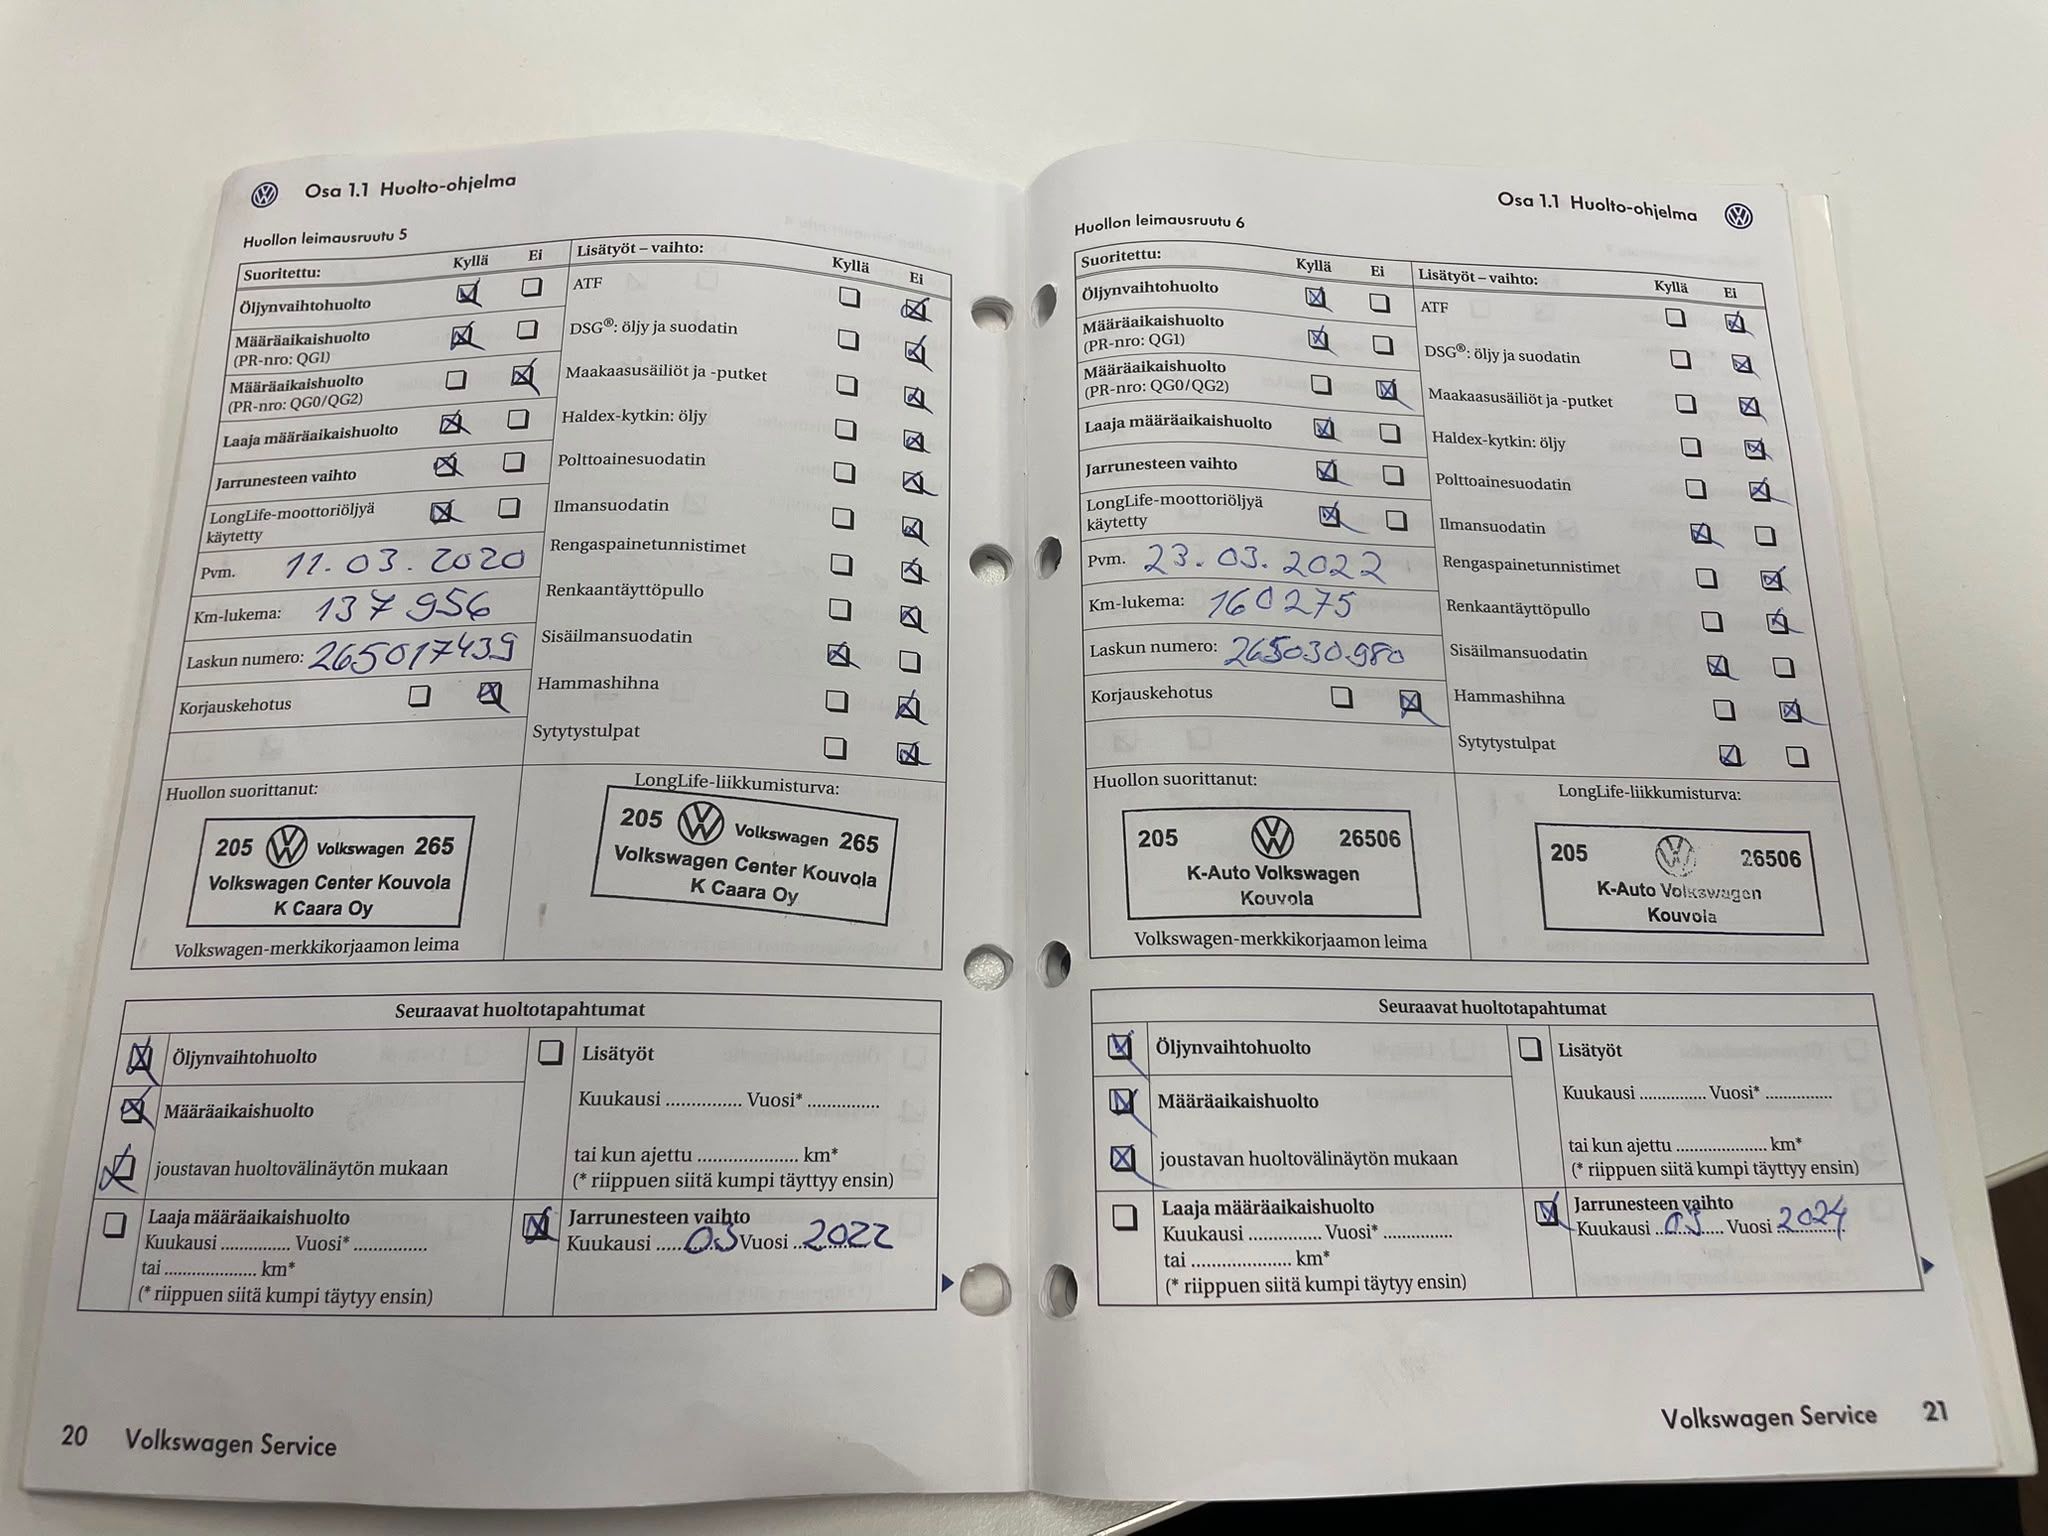 Osa 1.1 Huolto-ohjelma
Huollon leimausruutu 5
Suoritettu: Kyllä Ei
Öljynvaihtohuolto
Määräaikaishuolto
(PR-nro: QG1)
Määräaikaishuolto
(PR-nro: QG0/QG2)
Laaja määräaikaishuolto
Jarrunesteen vaihto
LongLife-moottoriöljyä
käytetty
Pvm. 11.03.2020
Km-lukema: 137 956
Laskun numero: 265017439
Korjauskehotus
Lisätyöt – vaihto: Kyllä Ei
ATF
DSG®: öljy ja suodatin
Maakaasusäiliöt ja -putket
Haldex-kytkin: öljy
Polttoainesuodatin
Ilmansuodatin
Rengaspainetunnistimet
Renkaantäyttöpullo
Sisäilmansuodatin
Hammashihna
Sytytystulpat
Huollon suorittanut:
205 Volkswagen 265
Volkswagen Center Kouvola
K Caara Oy
Volkswagen-merkkikorjaamon leima
LongLife-liikkumisturva:
205 Volkswagen 265
Volkswagen Center Kouvola
K Caara Oy
Seuraavat huoltotapahtumat
Öljynvaihtohuolto
Määräaikaishuolto
joustavan huoltovälinäytön mukaan
Lisätyöt
Kuukausi ............... Vuosi* ...............
tai kun ajettu ..................... km*
(* riippuen siitä kumpi täyttyy ensin)
Laaja määräaikaishuolto
Kuukausi .............. Vuosi* ...............
tai ................... km*
(* riippuen siitä kumpi täytyy ensin)
Jarrunesteen vaihto
Kuukausi 03 Vuosi 2022
20 Volkswagen Service
Osa 1.1 Huolto-ohjelma
Huollon leimausruutu 6
Suoritettu: Kyllä Ei
Öljynvaihtohuolto
Määräaikaishuolto
(PR-nro: QG1)
Määräaikaishuolto
(PR-nro: QG0/QG2)
Laaja määräaikaishuolto
Jarrunesteen vaihto
LongLife-moottoriöljyä
käytetty
Pvm. 23.03.2022
Km-lukema: 160275
Laskun numero: 265030980
Korjauskehotus
Lisätyöt – vaihto: Kyllä Ei
ATF
DSG®: öljy ja suodatin
Maakaasusäiliöt ja -putket
Haldex-kytkin: öljy
Polttoainesuodatin
Ilmansuodatin
Rengaspainetunnistimet
Renkaantäyttöpullo
Sisäilmansuodatin
Hammashihna
Sytytystulpat
Huollon suorittanut:
205 26506
K-Auto Volkswagen
Kouvola
Volkswagen-merkkikorjaamon leima
LongLife-liikkumisturva:
205 26506
K-Auto Volkswagen
Kouvola
Seuraavat huoltotapahtumat
Öljynvaihtohuolto
Määräaikaishuolto
joustavan huoltovälinäytön mukaan
Lisätyöt
Kuukausi .............. Vuosi* ...............
tai kun ajettu .................... km*
(* riippuen siitä kumpi täyttyy ensin)
Laaja määräaikaishuolto
Kuukausi ............... Vuosi* ...............
tai ..................... km*
(* riippuen siitä kumpi täytyy ensin)
Jarrunesteen vaihto
Kuukausi 03 Vuosi 2024
Volkswagen Service 21